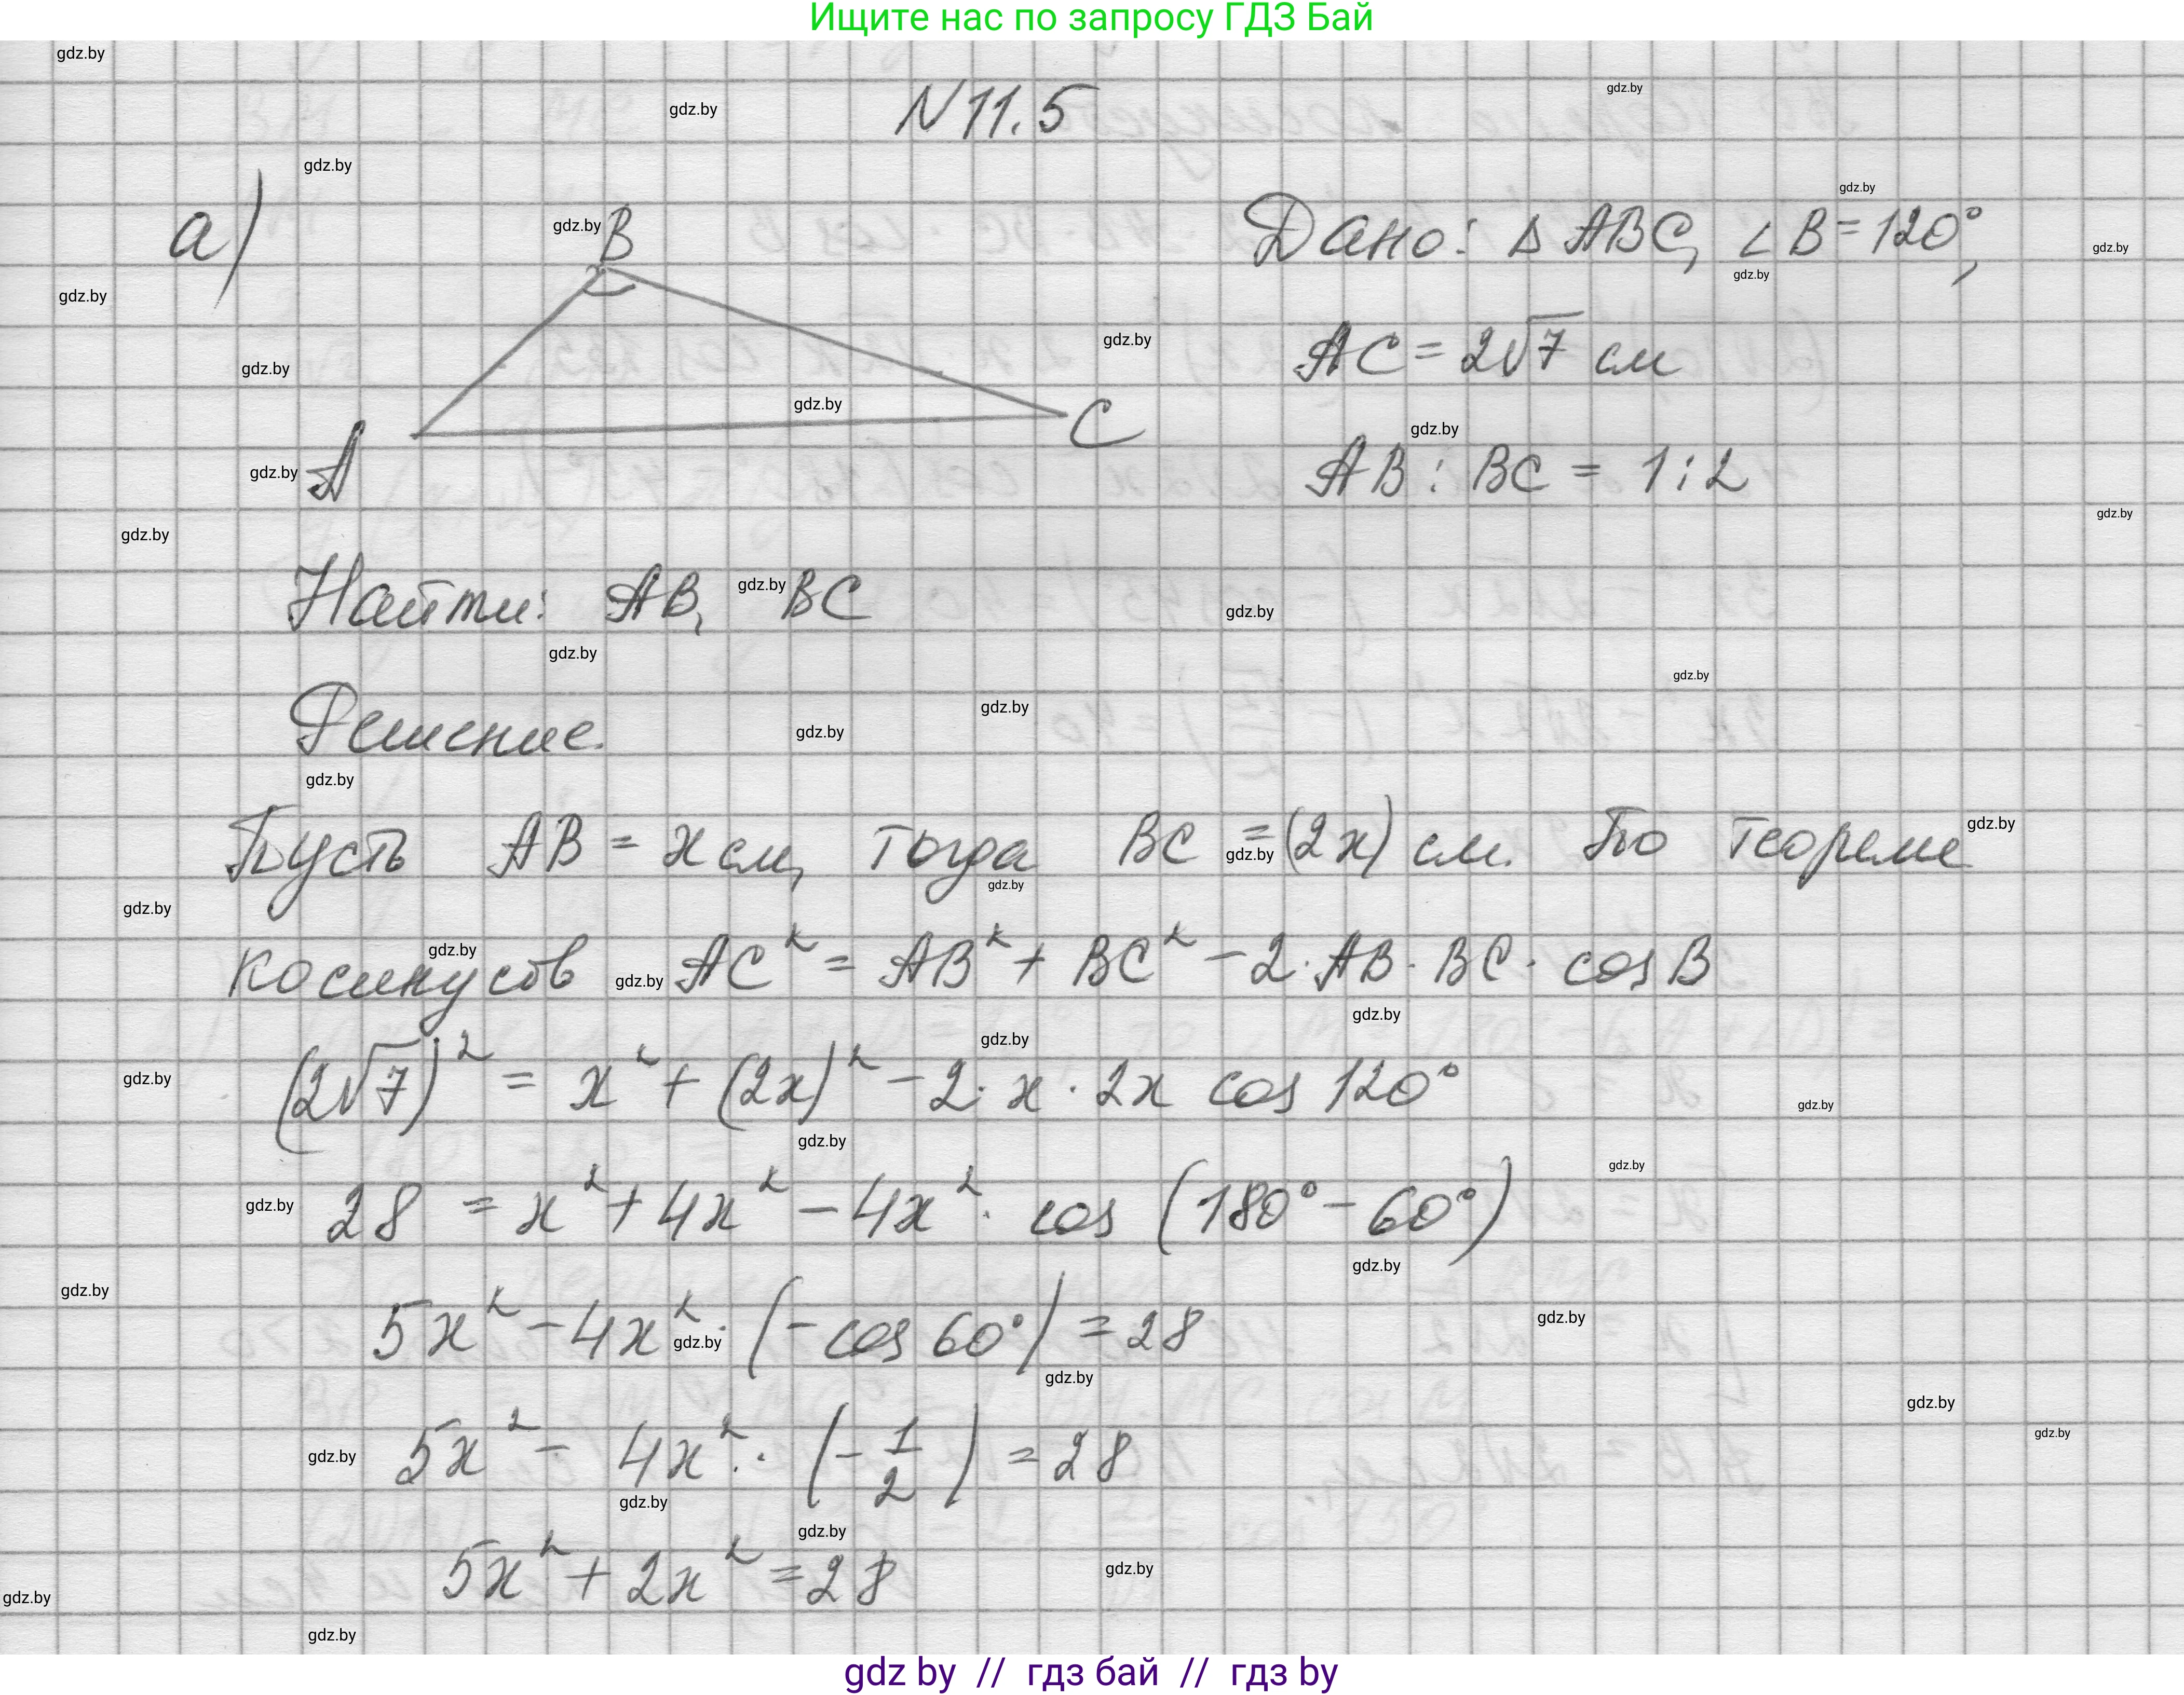 Ищите нас по запросу ГДЗ Бай
N 11.5
а)
B
A
C
Дано: Δ ABC, ∠B = 120°,
AC = 2√7 см
AB : BC = 1 : 2
Найти: AB, BC
Решение.
Пусть AB = x см, тогда BC = (2x) см. По теореме
косинусов AC² = AB² + BC² - 2 · AB · BC · cos B
(2√7)² = x² + (2x)² - 2 · x · 2x cos 120°
28 = x² + 4x² - 4x² · cos (180° - 60°)
5x² - 4x² · (- cos 60°) = 28
5x² - 4x² · (- 1/2) = 28
5x² + 2x² = 28
gdz by // гдз бай // гдз by